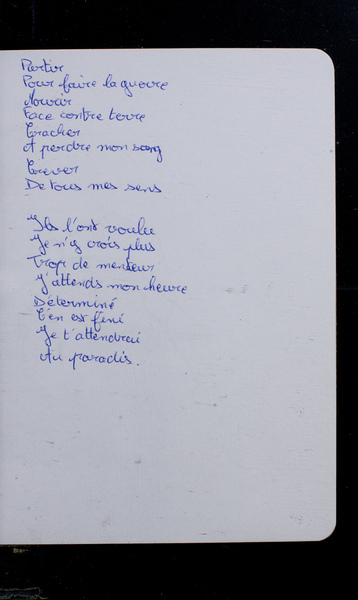 Partir
Pour faire la guerre
Mourir
Face contre terre
Cracher
A perdre mon sang
Crever
De tous mes sens
Ils l'ont voulu
Je n'y crois plus
Trop de menteur
J'attends mon heure
Déterminé
C'en est fini
Je t'attendrai
Au paradis.